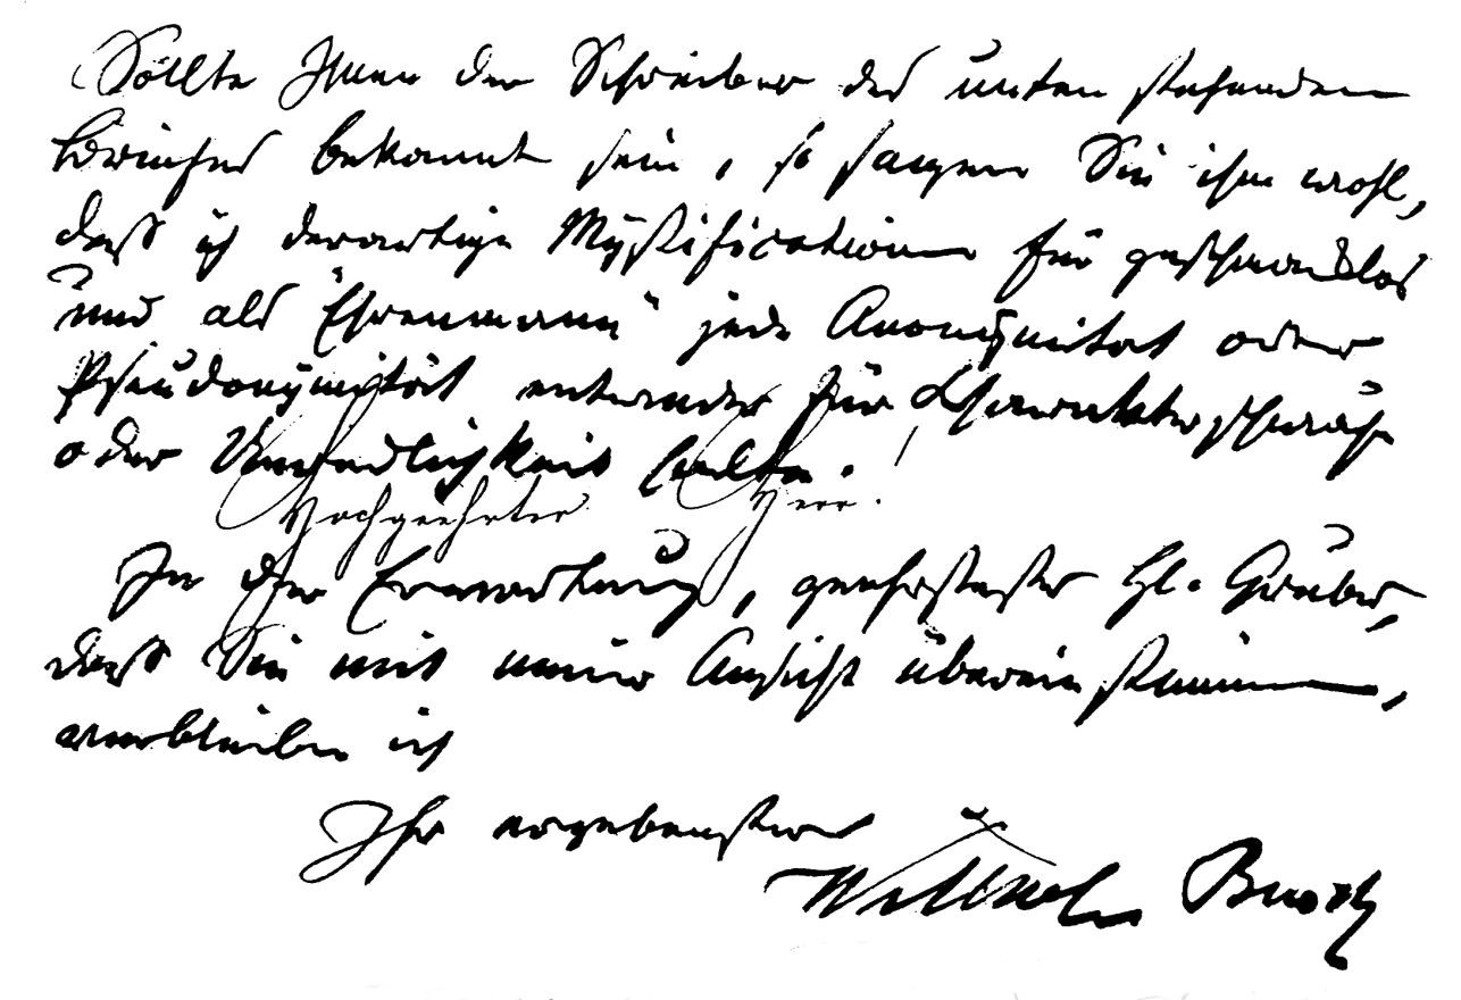 Sollte Ihnen der Schreiber des unten stehenden
bekannt sein, so sagen Sie ihm wohl,
daß ich derartige Mystificationen für geschmacklos
und als "Ehrenmann" jede Anonymität oder
Pseudonymität entweder für Charakterschwäche
oder halte!
Hochgeehrter Herr.
In der Erwartung, geehrtester Hr. Gruber,
daß Sie mit meiner Ansicht übereinstimmen,
verbleibe ich
Ihr ergebenster
Wilhelm Busch